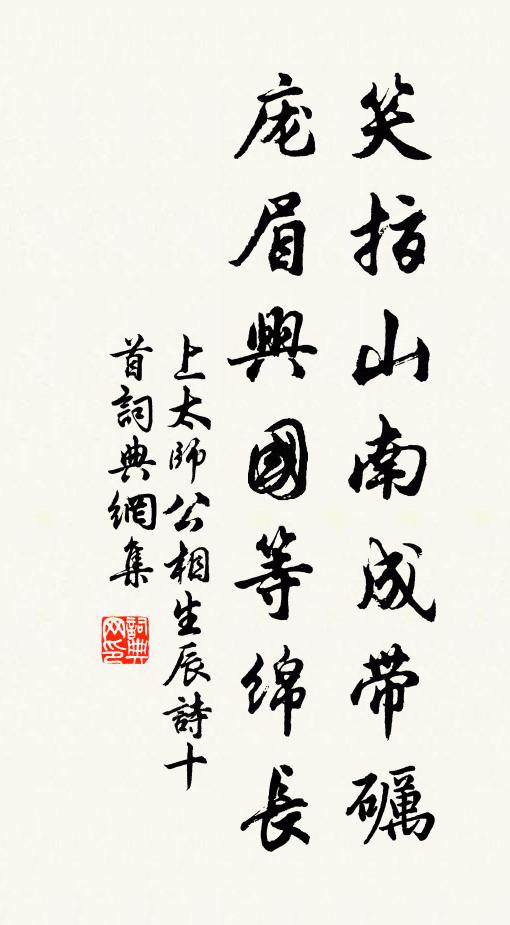 笑指山南成带礪
庞眉興國等綿長
上太師公相生辰詩十
首詞典網集
詞典
网印